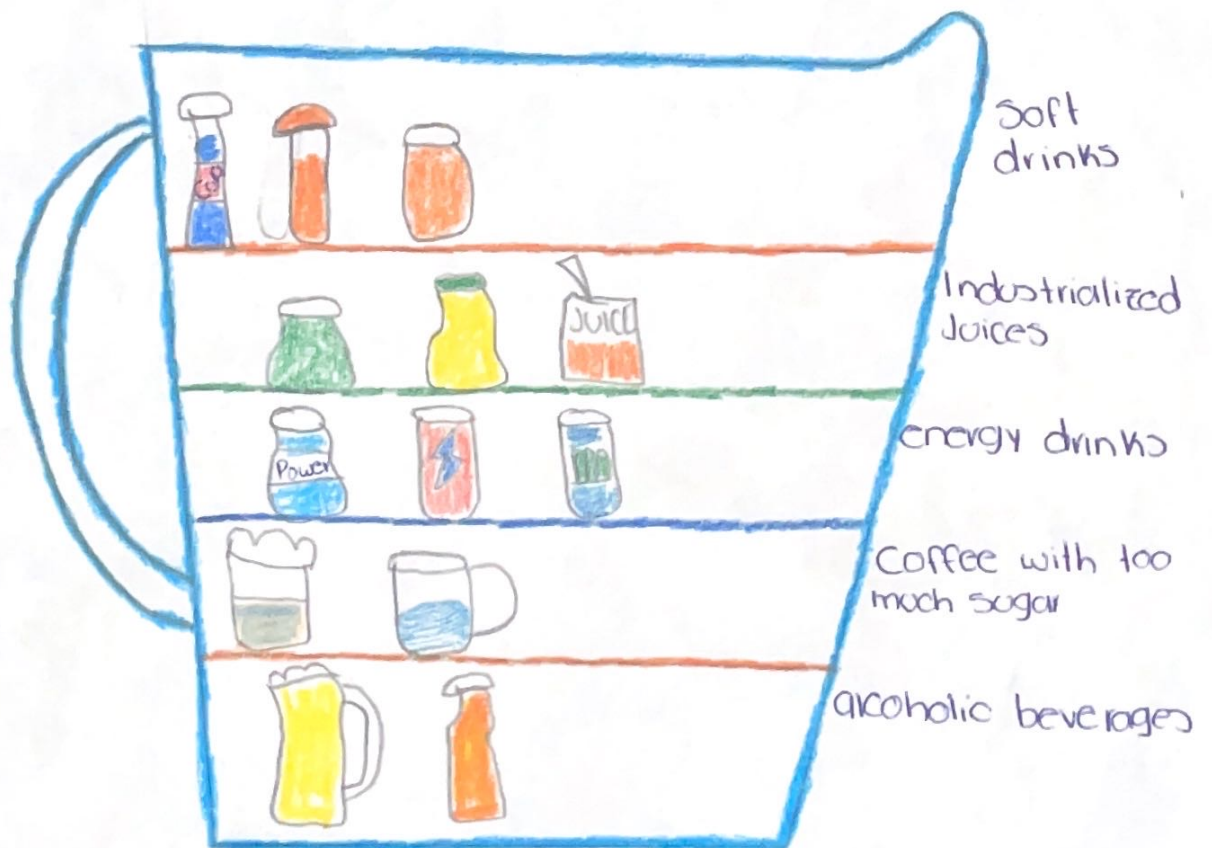 Soft
drinks
Industrialized
Juices
JUICE
energy drinks
Power
Coffee with too
much sugar
alcoholic beverages